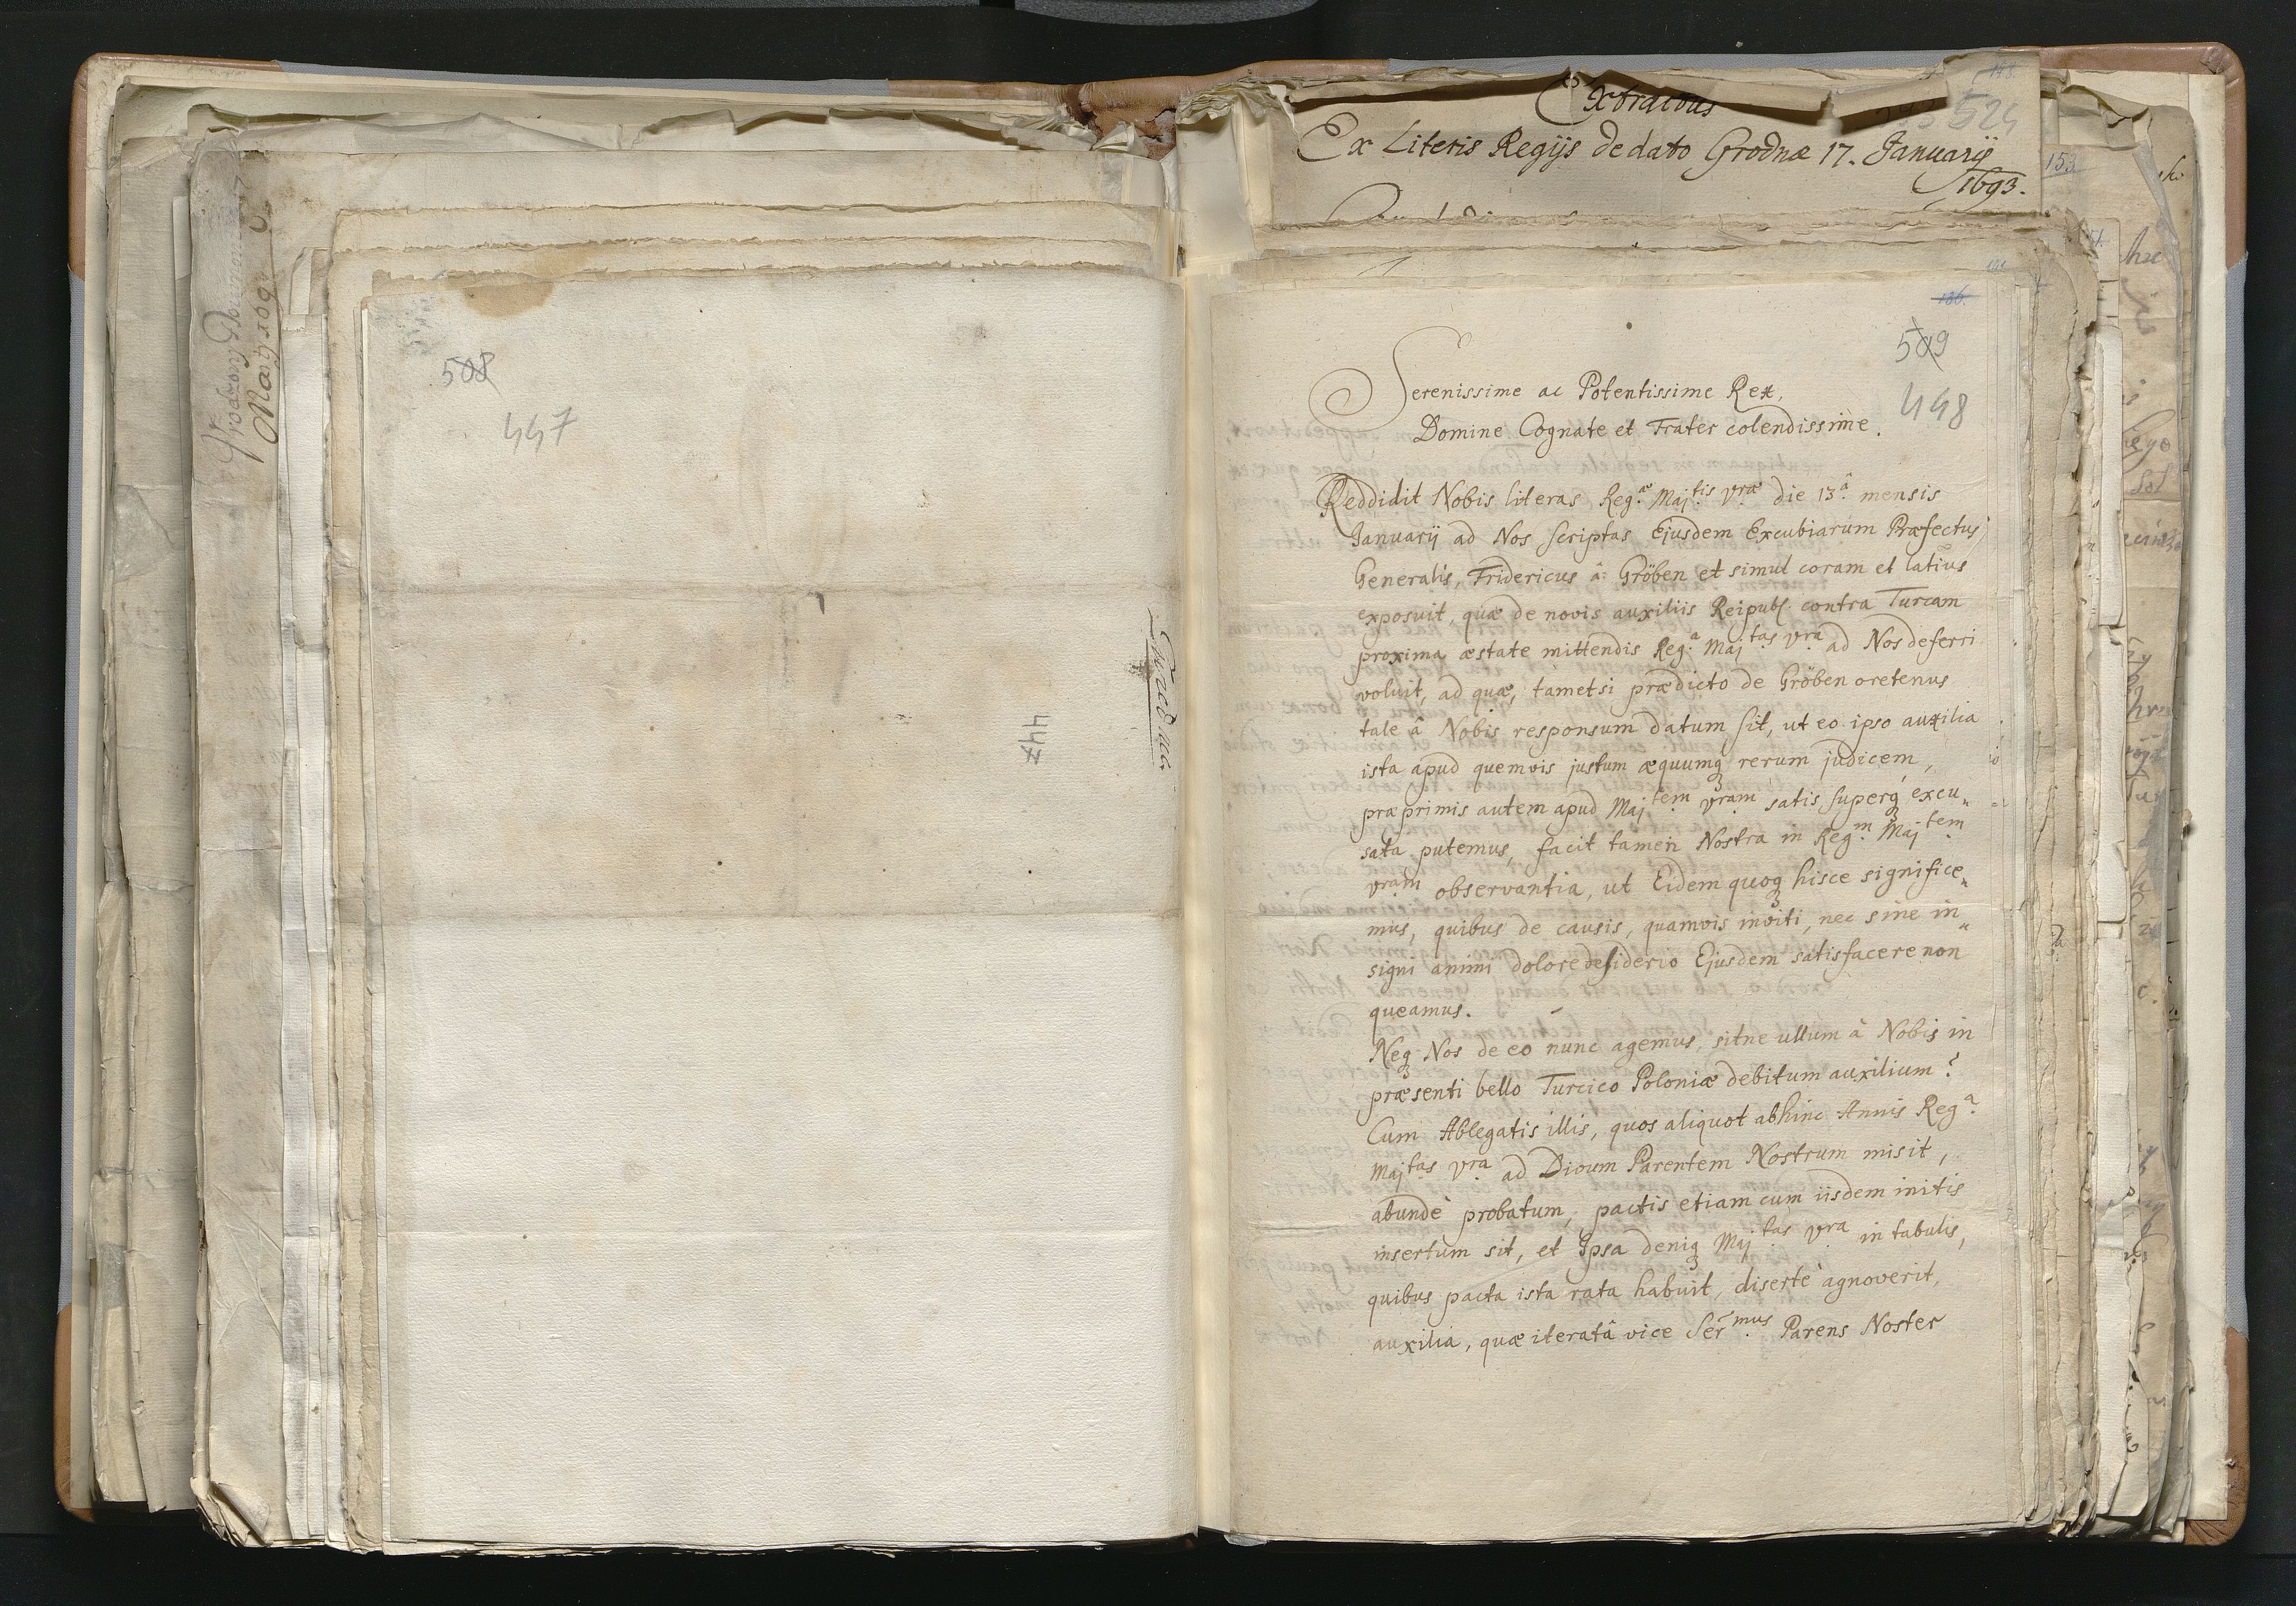 508
447
447
Extractus
524
Ex Literis Regijs de dato Grodnæ 17. Januarij
1693.
153.
509
448
Serenissime ac Potentissime Rex,
Domine Cognate et Frater colendissime.
Reddidit Nobis literas Reg.æ Maj.tis vræ die 13.â mensis
Januarij ad Nos scriptas Ejusdem Excubiarum Præfectus
Generalis, Fridericus â Gröben et simul coram et latius
exposuit, quæ de novis auxiliis Reipubl. contra Turcam
proxima æstate mittendis Reg.a Maj.tas vra ad Nos deferri
voluit, ad quæ, tametsi prædicto de Gröben oretenus
tale â Nobis responsum datum sit, ut eo ipso auxilia
ista apud quemvis justum æquumq rerum judicem,
præprimis autem apud Maj.tem vram satis superq excu„
sata putemus, facit tamen Nostra in Reg.m Maj.tem
vram observantia, ut Eidem quoq hisce significe„
mus, quibus de causis, quamvis inviti, nec sine in„
signi animi dolore desiderio Ejusdem satisfacere non
queamus.
Neq Nos de eo nunc agemus, sitne ullum â Nobis in
præsenti bello Turcico Poloniæ debitum auxilium?
Cum Ablegatis illis, quos aliquot abhinc Annis Reg.a
Maj.tas vra ad Divum Parentem Nostrum misit,
abundè probatum, pactis etiam cum iisdem initis
insertum sit, et Ipsa deniq Maj.tas vra in tabulis,
quibus pacta ista rata habuit, disertè agnoverit,
auxilia, quæ iteratâ vice Ser.mus Parens Noster